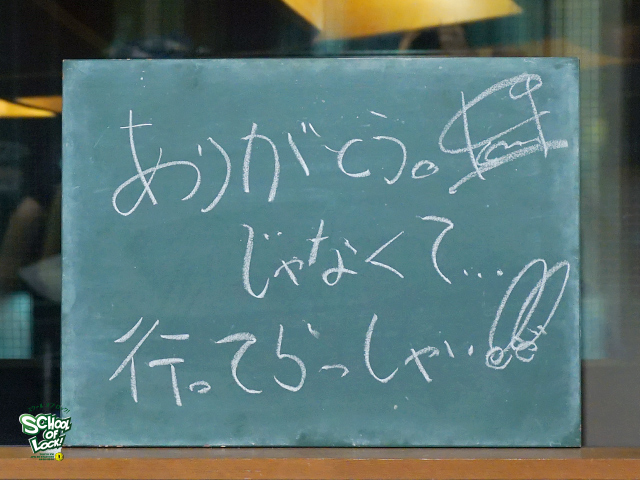 ありがとう。
じゃなくて...
行ってらっしゃい!!
SCHOOL
OF
LOCK!